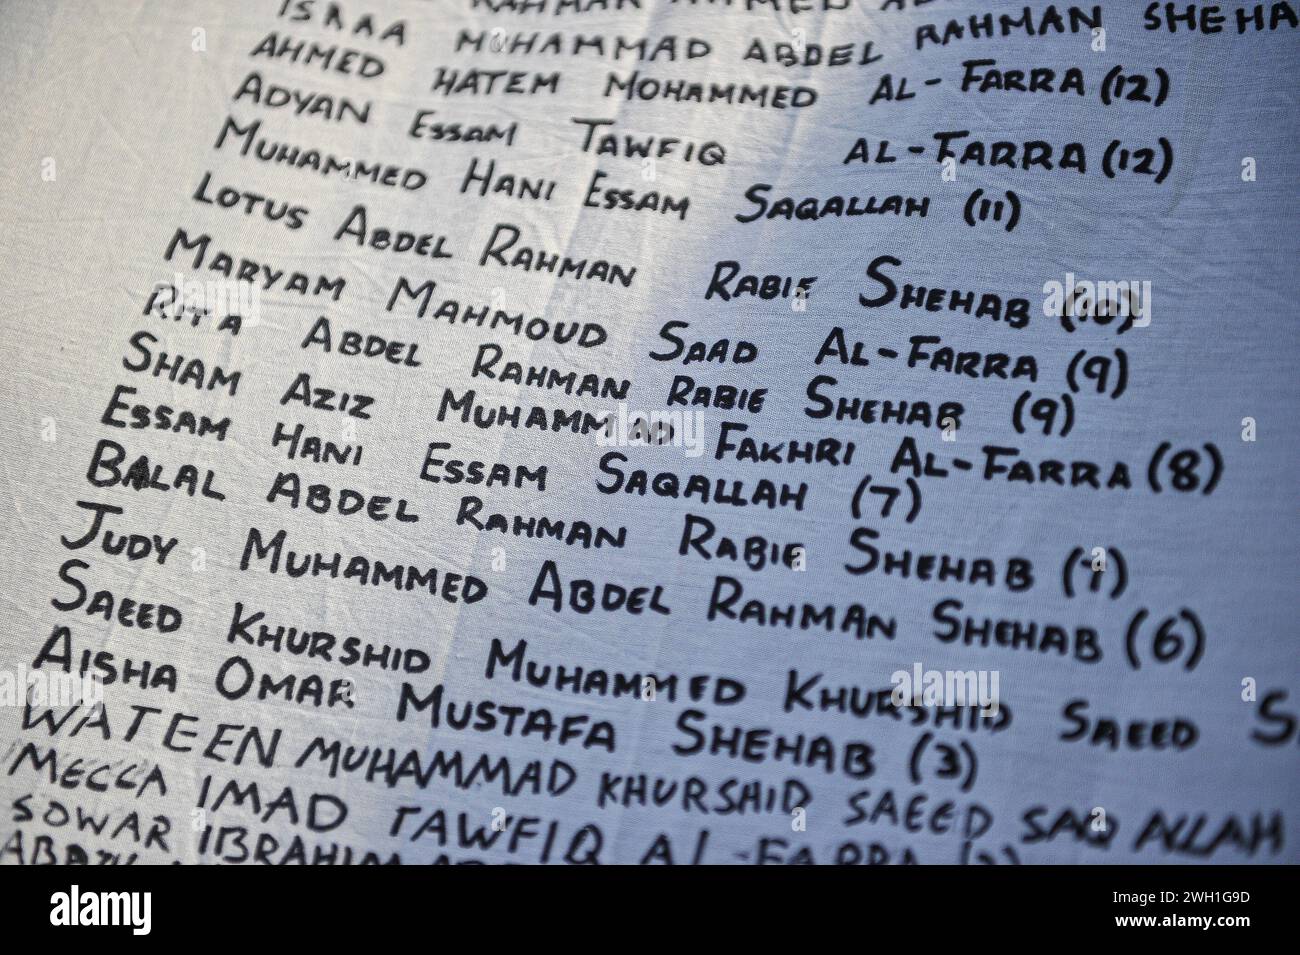 RAHMAN AHMED
ISRAA MUHAMMAD ABDEL RAHMAN SHEHA
AHMED HATEM MOHAMMED AL-FARRA (12)
ADYAN ESSAM TAWFIQ AL-FARRA (12)
MUHAMMED HANI ESSAM SAQALLAH (11)
LOTUS ABDEL RAHMAN RABIE SHEHAB (10)
MARYAM MAHMOUD SAAD AL-FARRA (9)
RITA ABDEL RAHMAN RABIE SHEHAB (9)
SHAM AZIZ MUHAMMAD FAKHRI AL-FARRA (8)
ESSAM HANI ESSAM SAQALLAH (7)
BALAL ABDEL RAHMAN RABIE SHEHAB (7)
JUDY MUHAMMED ABDEL RAHMAN SHEHAB (6)
SAEED KHURSHID MUHAMMED KHURSHID SAEED S
AISHA OMAR MUSTAFA SHEHAB (3)
WATEEN MUHAMMAD KHURSHID SAEED SAQALLAH
MECCA IMAD TAWFIQ AL-FARRA
SOWAR IBRAHIM
alamy
Image ID: 2WH1G9D
www.alamy.com